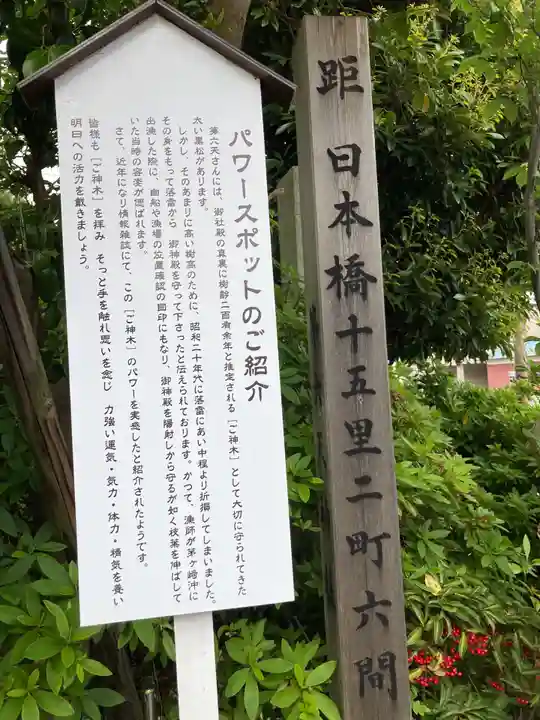 パワースポットのご紹介
第六天さんには、御社殿の真裏に樹齢二百有余年と推定される［ご神木］として大切に守られてきた
太い黒松があります。
しかし、そのあまりに高い樹高のために、昭和二十年代に落雷にあい中程より折損してしまいました。
その身をもって落雷から 御神殿を守って下さったと伝えられております。かつて、漁師が茅ヶ崎沖に
出漁した際に、自船や漁場の位置確認の目印にもなり、御神殿を陽射しから守るが如く枝葉を伸ばして
いた当時の容姿が偲ばれます。
さて、近年になり情報雑誌にて、この［ご神木］のパワーを実感したと紹介されたようです。
皆様も［ご神木］を拝み そっと手を触れ思いを念じ 力強い運気・気力・体力・積気を養い
明日への活力を戴きましょう。
距 日本橋十五里二町六間